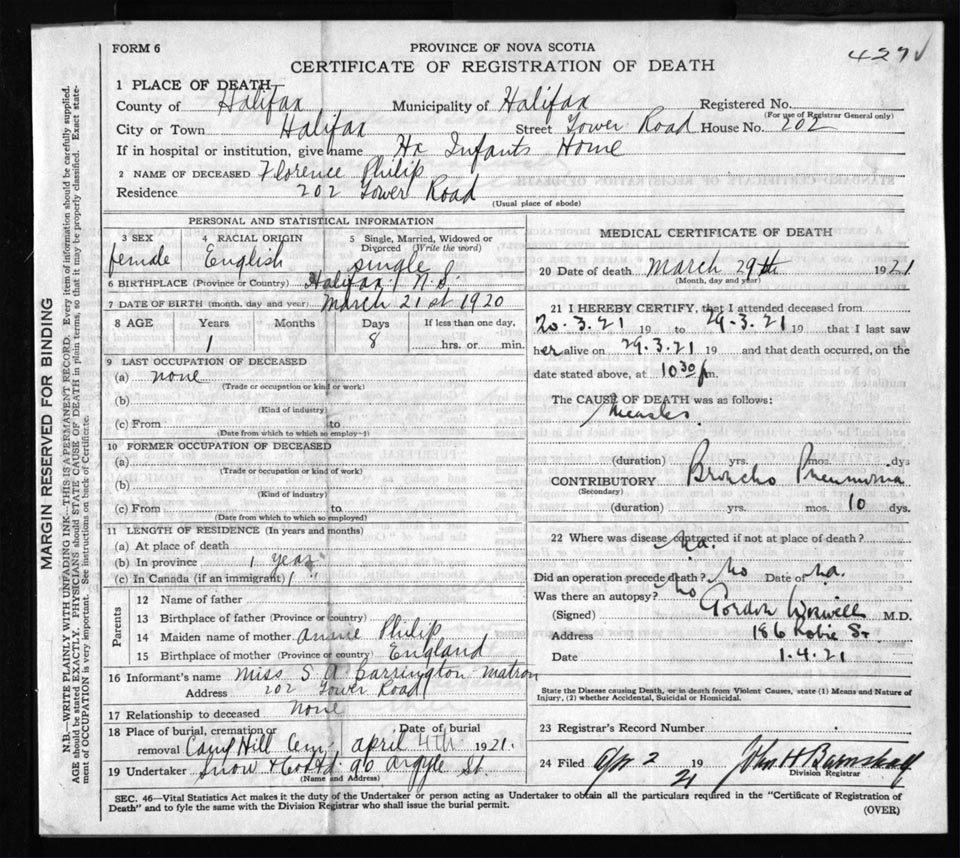 FORM 6
PROVINCE OF NOVA SCOTIA
CERTIFICATE OF REGISTRATION OF DEATH
427
1 PLACE OF DEATH
County of Halifax Municipality of Halifax Registered No.
(For use of Registrar General only)
City or Town Halifax Street Tower Road House No. 202
If in hospital or institution, give name Hx Infants Home
2 NAME OF DECEASED Florence Philip
Residence 202 Tower Road
(Usual place of abode)
PERSONAL AND STATISTICAL INFORMATION
3 SEX 4 RACIAL ORIGIN 5 Single, Married, Widowed or Divorced (Write the word)
female English single
6 BIRTHPLACE (Province or Country) Halifax N.S.
7 DATE OF BIRTH (month, day and year) March 21st 1920
8 AGE Years Months Days If less than one day,
1 8 hrs. or min.
9 LAST OCCUPATION OF DECEASED
(a) none
(Trade or occupation or kind or work)
(b)
(Kind of industry)
(c) From to
(Date from which to which so employed)
10 FORMER OCCUPATION OF DECEASED
(a)
(Trade or occupation or kind of work)
(b)
(Kind of industry)
(c) From to
(Date from which to which so employed)
11 LENGTH OF RESIDENCE (In years and months)
(a) At place of death
(b) In province 1 year
(c) In Canada (if an immigrant) 1 "
Parents
12 Name of father
13 Birthplace of father (Province or country)
14 Maiden name of mother Annie Philip
15 Birthplace of mother (Province or country) England
16 Informant's name Miss S. A. Carrington Matron
Address 202 Tower Road
17 Relationship to deceased none
18 Place of burial, cremation or removal Camp Hill Cem. Date of burial April 4th 1921.
19 Undertaker Snow & Co Ltd 90 Argyle St
(Name and Address)
MEDICAL CERTIFICATE OF DEATH
20 Date of death March 29th 1921
(Month, day and year)
21 I HEREBY CERTIFY, that I attended deceased from
20.3.21 19 to 29.3.21 19 that I last saw
her alive on 29.3.21 19 and that death occurred, on the
date stated above, at 10 30 pm.
The CAUSE OF DEATH was as follows:
Measles
(duration) yrs. mos. dys
CONTRIBUTORY Broncho Pneumonia
(Secondary)
(duration) yrs. mos. 10 dys.
22 Where was disease contracted if not at place of death? na.
Did an operation precede death? No Date of na.
Was there an autopsy? No
(Signed) Gordon Wiswell M.D.
Address 186 Robie St
Date 1.4.21
State the Disease causing Death, or in death from Violent Causes, state (1) Means and Nature of
Injury, (2) whether Accidental, Suicidal or Homicidal.
23 Registrar's Record Number
24 Filed Apr 2 19 21 John H Barnstead
Division Registrar
SEC. 46—Vital Statistics Act makes it the duty of the Undertaker or person acting as Undertaker to obtain all the particulars required in the "Certificate of Registration of
Death" and to fyle the same with the Division Registrar who shall issue the burial permit.
(OVER)
MARGIN RESERVED FOR BINDING
N.B.—WRITE PLAINLY WITH UNFADING INK—THIS IS A PERMANENT RECORD. Every item of information should be carefully supplied.
AGE should be stated EXACTLY. PHYSICIANS should STATE CAUSE OF DEATH in plain terms, so that it may be properly classified. Exact state-
ment of OCCUPATION is very important. See instructions on back of Certificate.